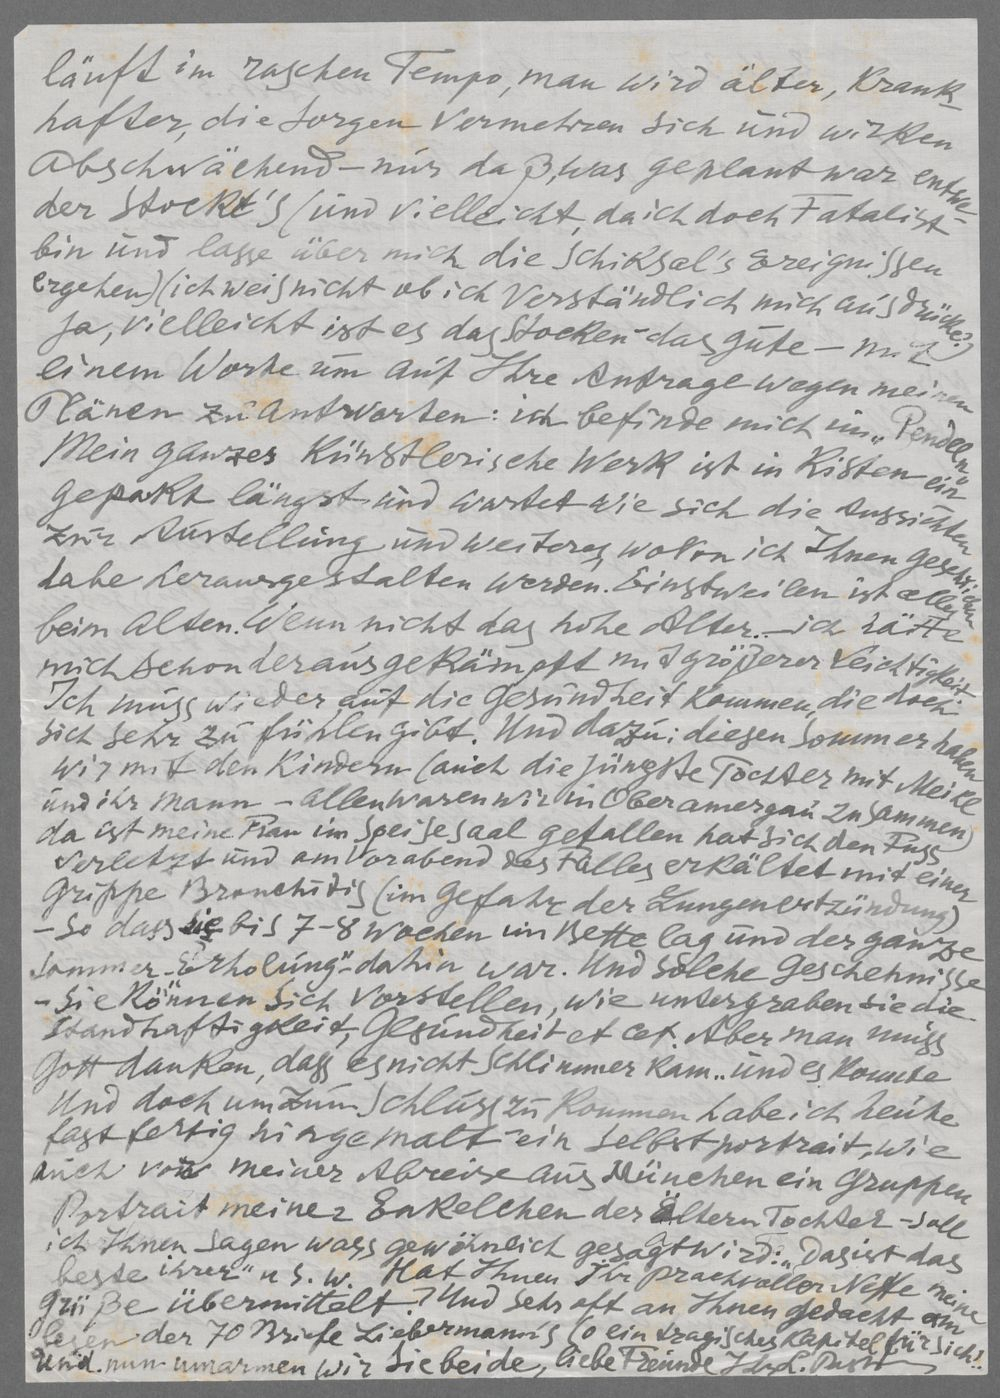 läuft im raschen Tempo, man wird älter, Krank-
hafter, die Sorgen vermehren sich und wirken
Abschwächend – nur daß, was geplant war entwe-
der stockt's (und vielleicht, da ich doch Fatalist
bin und lasse über mich die Schiksal's Ereignissen
ergehen) (ich weis nicht ob ich verständlich mich ausdrücke?)
Ja, vielleicht ist es das Stocken – das gute – mit
einem Worte um auf Ihre Anfrage wegen meinen
Plänen zu antworten: ich befinde mich im „Pendeln“
Mein ganzes Künstlerische Werk ist in Kisten ein
gepakt längst und wartet wie sich die Aussichten
zur Austellung und weiteres, wovon ich Ihnen geschrieben
habe herausgestalten werden. Einstweilen ist alles
beim Alten. Wenn nicht das hohe Alter.. – ich hätte
mich schon derausgekämpft mit größerer Leichtigkeit
Ich muss wieder auf die Gesundheit kommen, die doch
sich sehr zu fühlen gibt. Und dazu: diesen Sommer haben
wir mit den Kindern (auch die jüngste Tochter mit Meike
und ihr Mann – allen waren wir in Oberamergau zusammen)
da ist meine Frau im Speisesaal gefallen hat sich den Fuss
verletzt und am Vorabend des Falles erkältet mit einer
Grippe Bronchitis (im Gefahr der Lungenentzündung)
– So dass sie bis 7–8 Wochen im Bette lag und der ganze
Sommer „Erholung“ – dahin war. Und solche Geschehnisse
– Sie können sich vorstellen, wie untergraben sie die
Standhaftigkeit, Gesundheit et cet. Aber man muss
Gott danken, dass es nicht schlimmer kam.. und es konnte
Und doch um zum Schluss zu kommen habe ich heute
fast fertig hingemalt ein Selbstportrait, wie
auch vor meiner Abreise aus München ein Gruppen
Portrait meiner Enkelchen der ältern Tochter – soll
ich Ihnen sagen wass gewöhnlich gesagt wird: „Das ist das
beste ihrer“ u s. w. Hat Ihnen Ihr prachvoller Neffe meine
Grüße übermittelt? Und sehr oft an Ihnen gedacht am
lesen der 70 Briefe Liebermann's (o ein tragisches Kapitel für sich!..
Und nun umarmen wir Sie beide, liebe Freunde Ihr L.